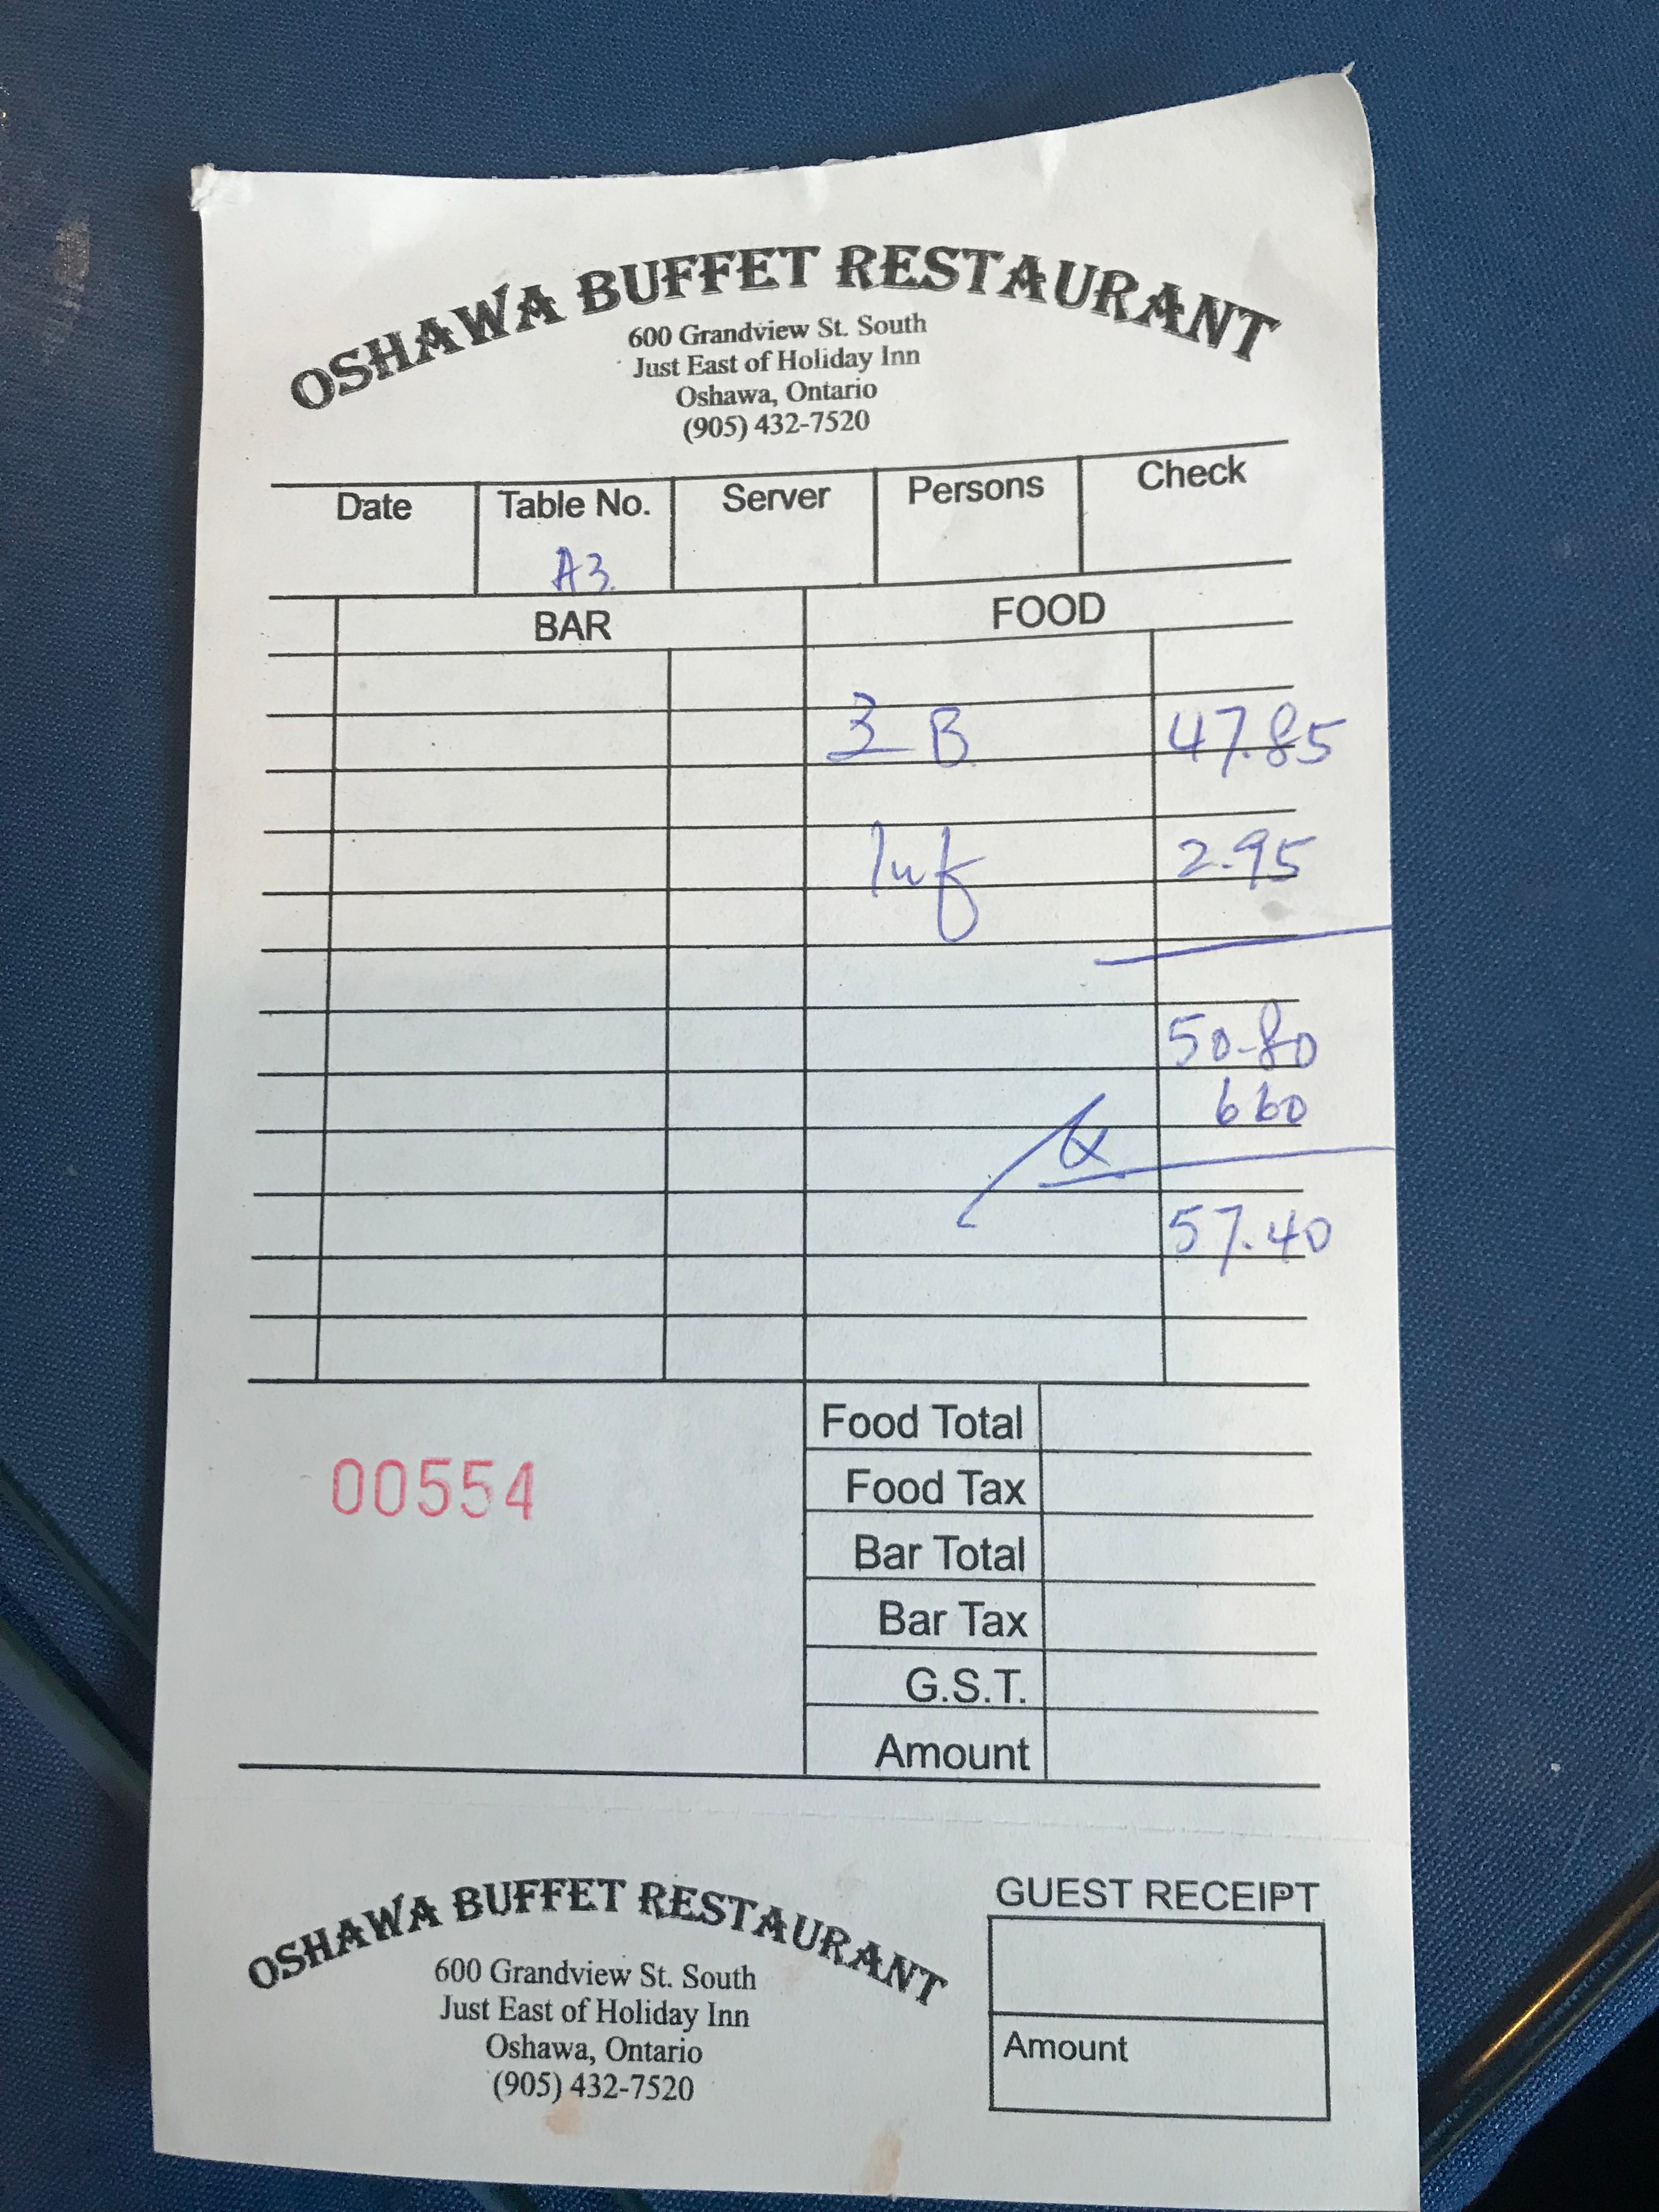 OSHAWA BUFFET RESTAURANT
600 Grandview St. South
Just East of Holiday Inn
Oshawa, Ontario
(905) 432-7520
Date Table No. Server Persons Check
A3
BAR FOOD
3 B 47.85
2.95
50.80
6 60
57.40
00554
Food Total
Food Tax
Bar Total
Bar Tax
G.S.T.
Amount
OSHAWA BUFFET RESTAURANT
600 Grandview St. South
Just East of Holiday Inn
Oshawa, Ontario
(905) 432-7520
GUEST RECEIPT
Amount